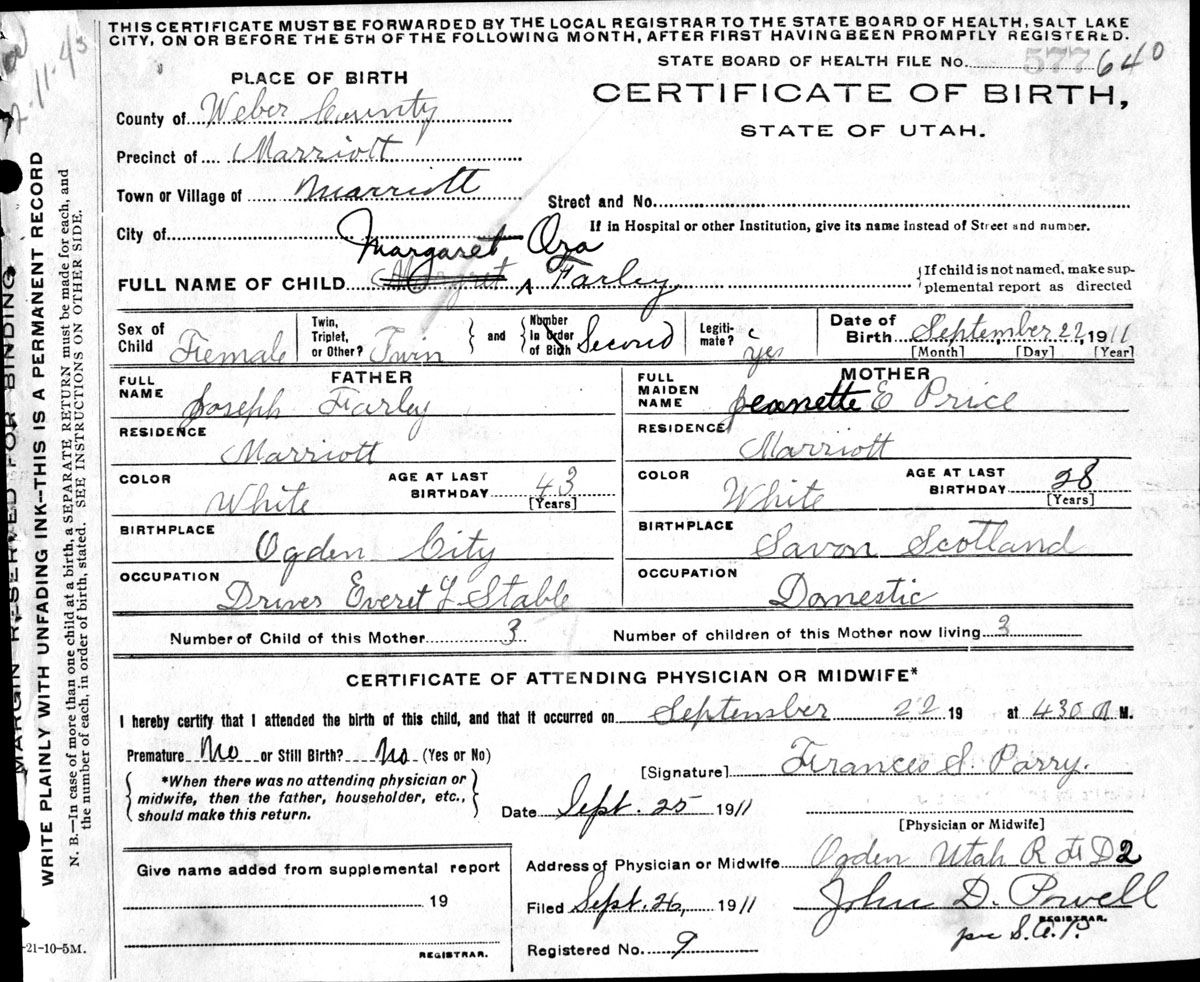 THIS CERTIFICATE MUST BE FORWARDED BY THE LOCAL REGISTRAR TO THE STATE BOARD OF HEALTH, SALT LAKE
CITY, ON OR BEFORE THE 5TH OF THE FOLLOWING MONTH, AFTER FIRST HAVING BEEN PROMPTLY REGISTERED.
STATE BOARD OF HEALTH FILE NO. 577 640
PLACE OF BIRTH
CERTIFICATE OF BIRTH,
STATE OF UTAH.
County of Weber County
Precinct of Marriott
Town or Village of Marriott
Street and No.
City of
If in Hospital or other Institution, give its name instead of Street and number.
Margaret Ora
FULL NAME OF CHILD Margret Farley
If child is not named, make sup-
plemental report as directed
Sex of Child Female
Twin, Triplet, or Other? Twin
and
Number in Order of Birth Second
Legiti-mate? yes
Date of Birth September 22, 1911
[Month] [Day] [Year]
FATHER
FULL NAME Joseph Farley
RESIDENCE Marriott
COLOR White
AGE AT LAST BIRTHDAY 43
[Years]
BIRTHPLACE Ogden City
OCCUPATION Driver Everet L Stable
MOTHER
FULL MAIDEN NAME Jeanette E Price
RESIDENCE Marriott
COLOR White
AGE AT LAST BIRTHDAY 28
[Years]
BIRTHPLACE Savon Scotland
OCCUPATION Domestic
Number of Child of this Mother 3
Number of children of this Mother now living 3
CERTIFICATE OF ATTENDING PHYSICIAN OR MIDWIFE*
I hereby certify that I attended the birth of this child, and that it occurred on September 22 19 at 430 a M.
Premature No or Still Birth? No (Yes or No)
*When there was no attending physician or
midwife, then the father, householder, etc.,
should make this return.
[Signature] Frances S. Parry.
Date Sept. 25 1911
[Physician or Midwife]
Give name added from supplemental report
19
REGISTRAR.
Address of Physician or Midwife Ogden Utah R F D 2
Filed Sept. 26, 1911 John D. Powell
REGISTRAR.
per S.A.P.
Registered No. 9
-21-10-5M.
MARGIN RESERVED FOR BINDING
WRITE PLAINLY WITH UNFADING INK--THIS IS A PERMANENT RECORD
N. B.—In case of more than one child at a birth, a SEPARATE RETURN must be made for each, and
the number of each, in order of birth, stated. SEE INSTRUCTIONS ON OTHER SIDE.